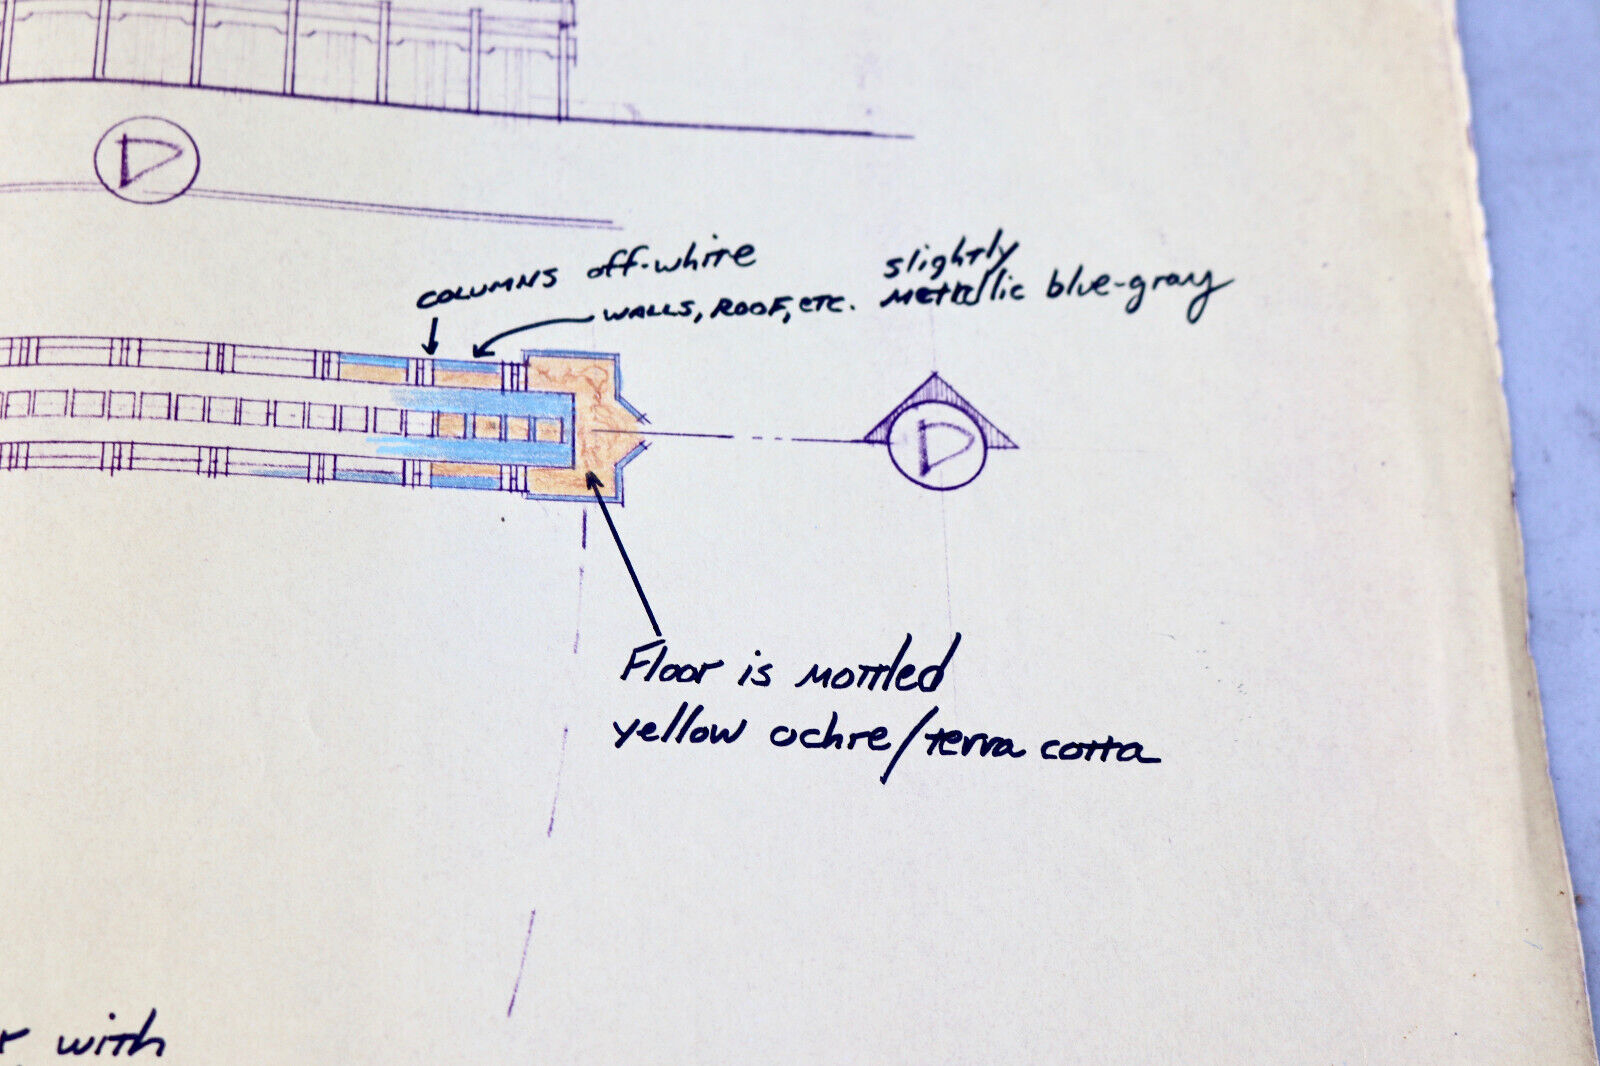 D
COLUMNS off-white
WALLS, ROOF, ETC. slightly metallic blue-gray
D
Floor is mottled
yellow ochre/terra cotta
with